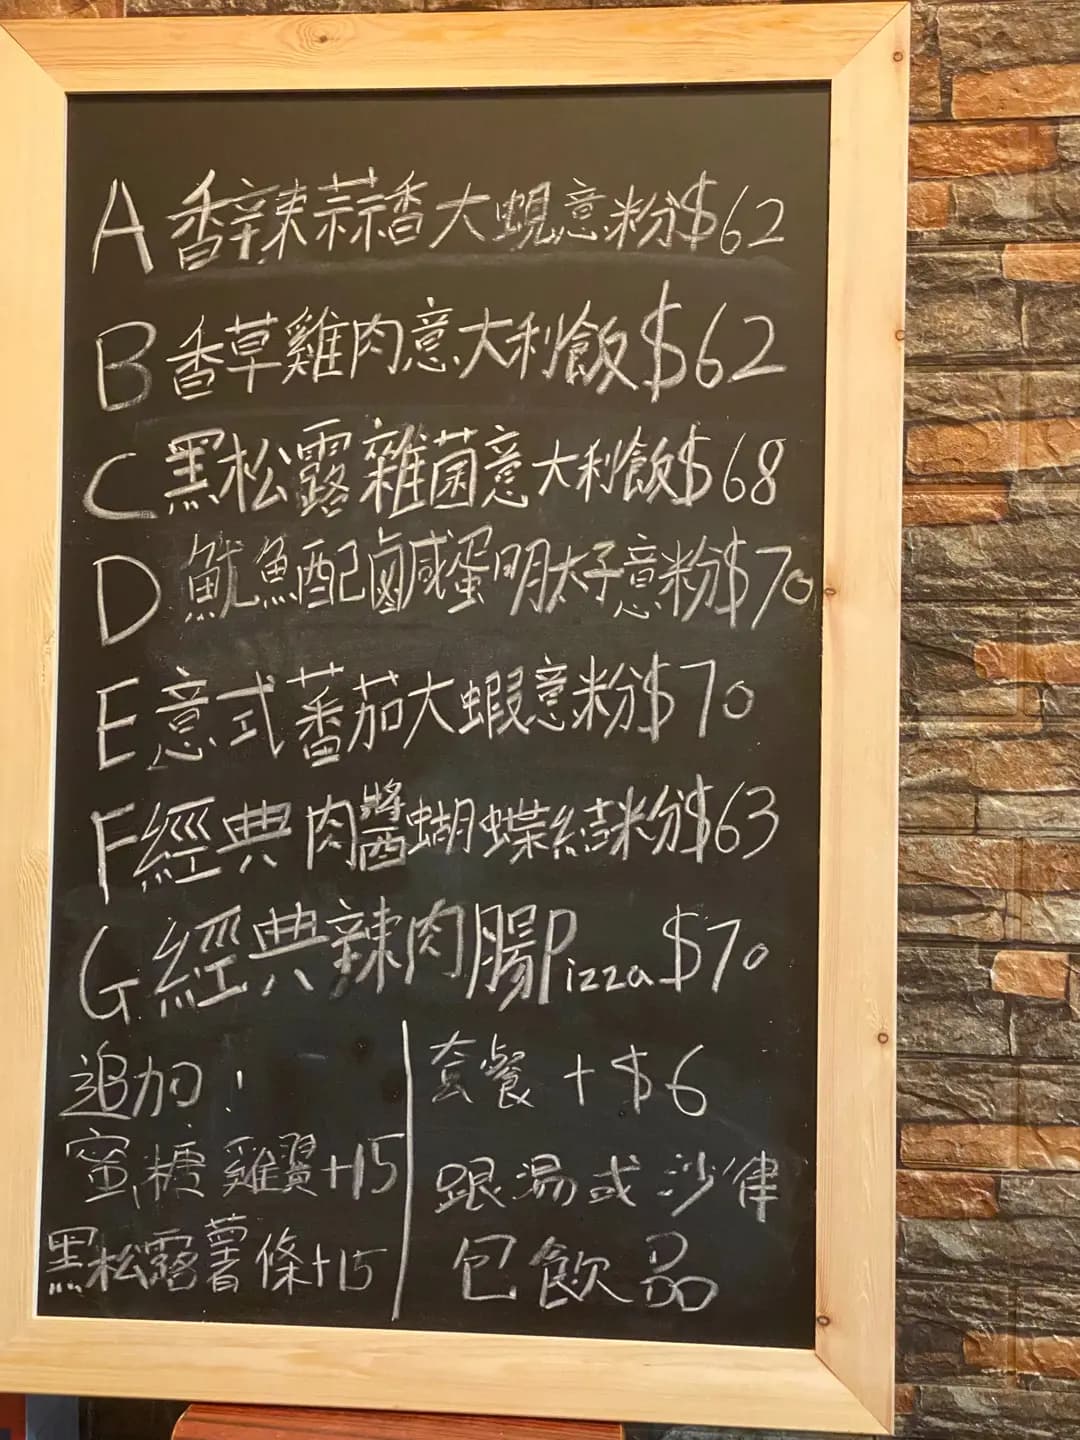 A 香辣蒜香大蜆意粉$62
B 香草雞肉意大利飯$62
C 黑松露雜菌意大利飯$68
D 魷魚配鹹蛋明太子意粉$70
E 意式蕃茄大蝦意粉$70
F 經典肉醬蝴蝶結粉$63
G 經典辣肉腸Pizza $70
追加!
蜜糖雞翼+15
黑松露薯條+15
套餐 +$6
跟湯或沙律
包飲品